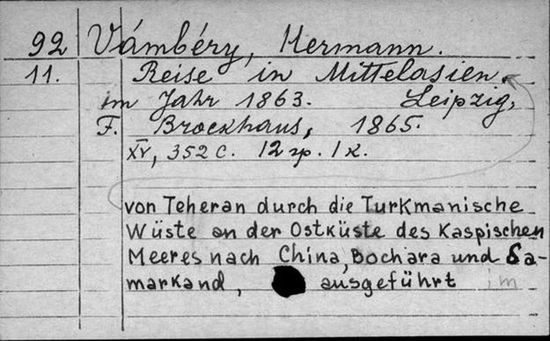 92 Vámbéry, Hermann.
11. Reise in Mittelasien
im Jahr 1863. Leipzig,
F. Brockhaus, 1865.
XV, 352 с. 12 гр. 1 к.
von Teheran durch die Turkmanische
Wüste an der Ostküste des Kaspischen
Meeres nach China, Bochara und Sa-
markand, ausgeführt im